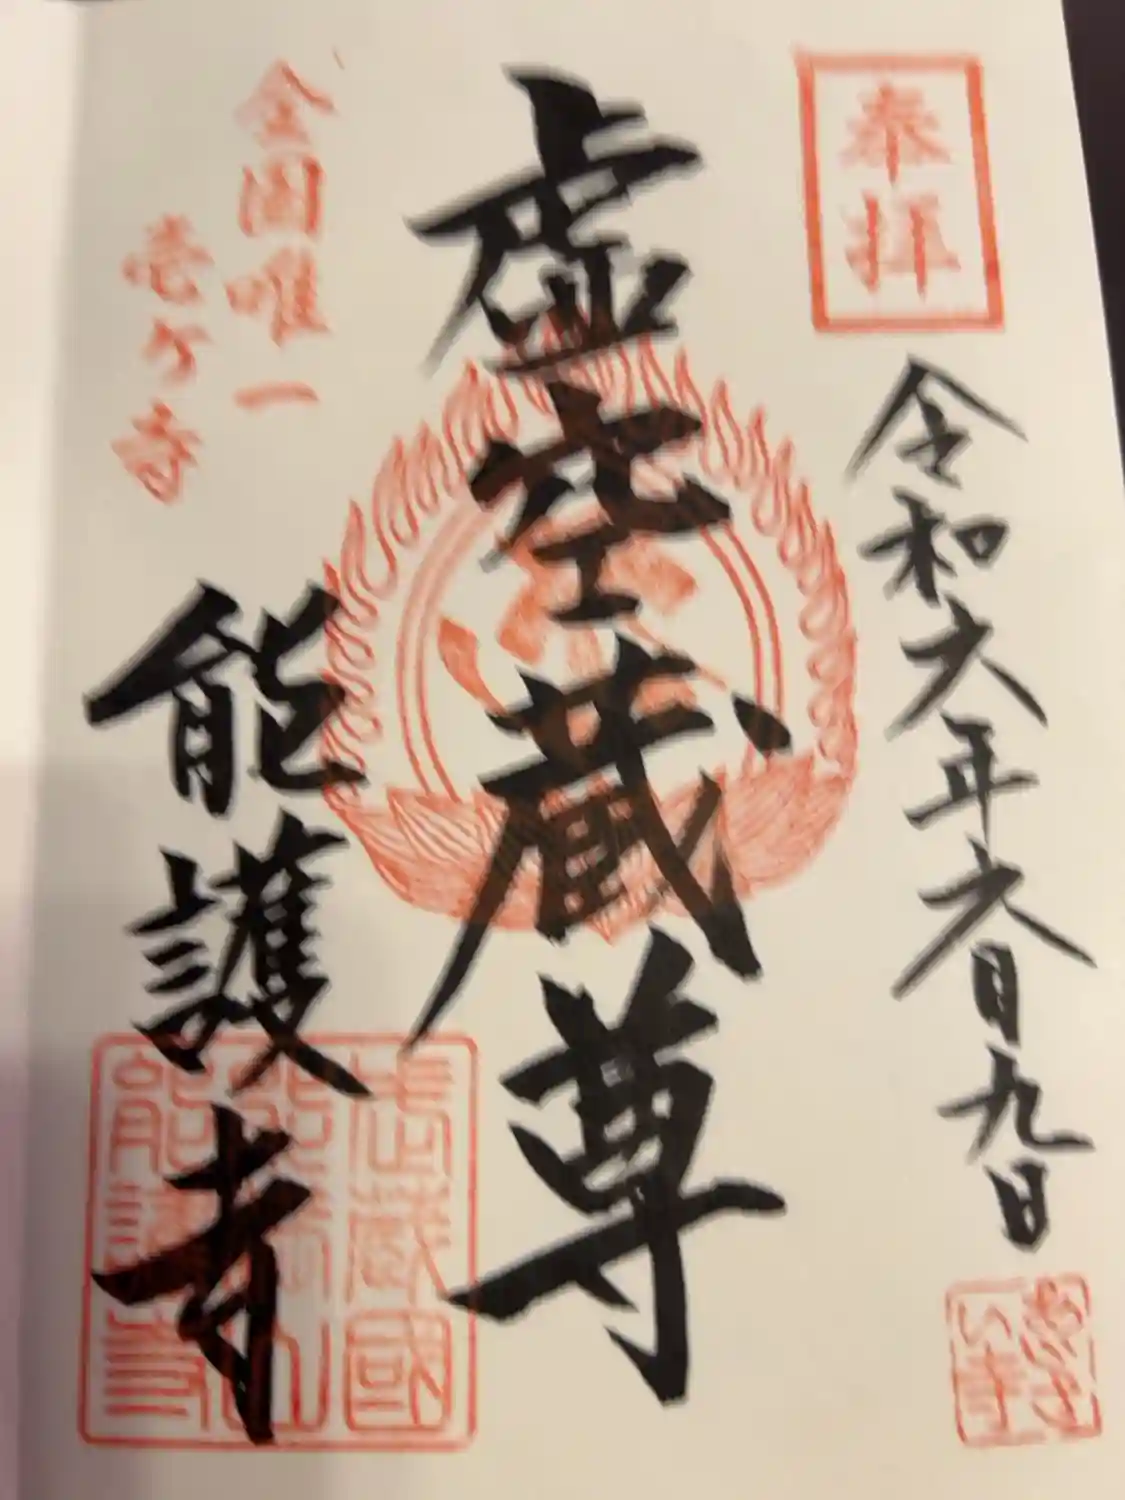 奉拝
令和六年六月九日
虚空蔵尊
全国唯一
壱ヶ寺
能護寺
武蔵國
能護寺
あじさい寺